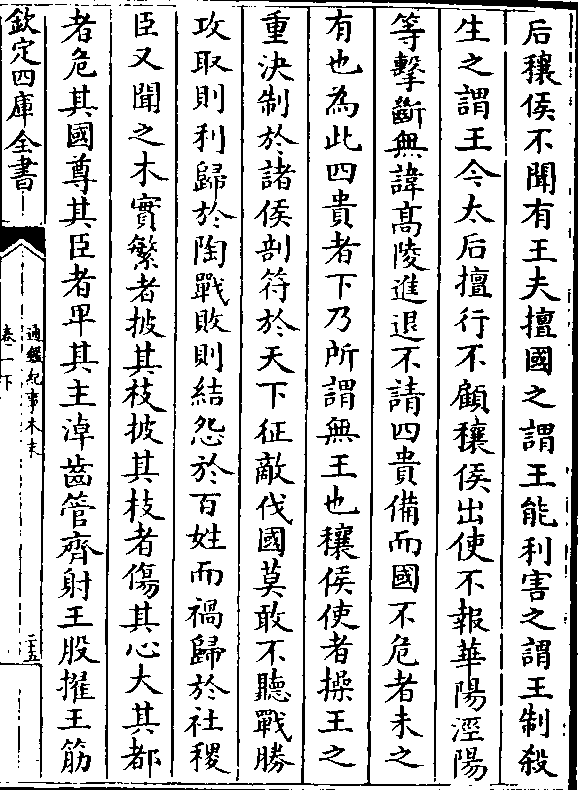 后穰侯不聞有王夫擅國之謂王能利害之謂王制殺
生之謂王今太后擅行不顧穰侯出使不報華陽涇陽
等擊斷無諱髙陵進退不請四貴備而國不危者未之
有也為此四貴者下乃所謂無王也穰侯使者操王之
重決制於諸侯剖符於天下征敵伐國莫敢不聽戰勝
攻取則利歸於陶戰敗則結怨於百姓而禍歸於社稷
臣又聞之木實繁者披其枝披其枝者傷其心大其都
者危其國尊其臣者卑其主淖齒管齊射王股擢王筋
欽定四庫全書
通鑑紀事本末
卷一下
二五